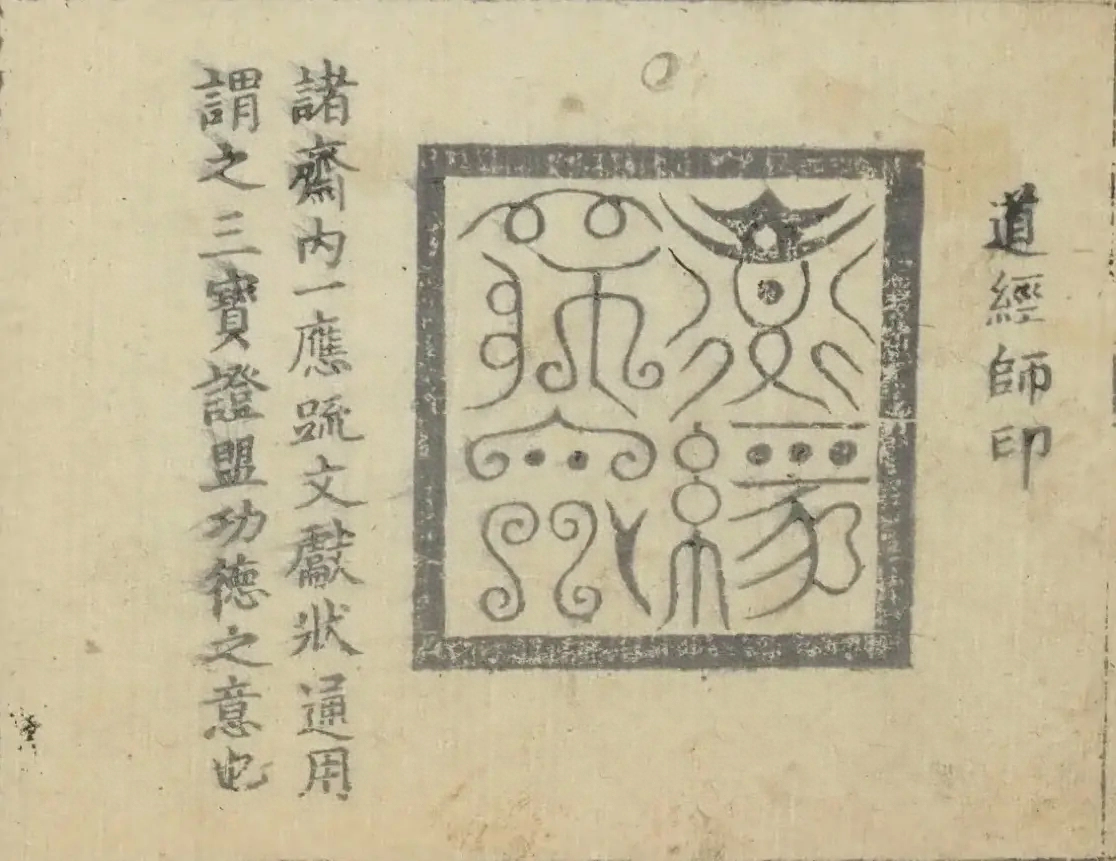 道經師印
諸齋內一應䟽文獻狀通用
謂之三寶證盟功德之意也